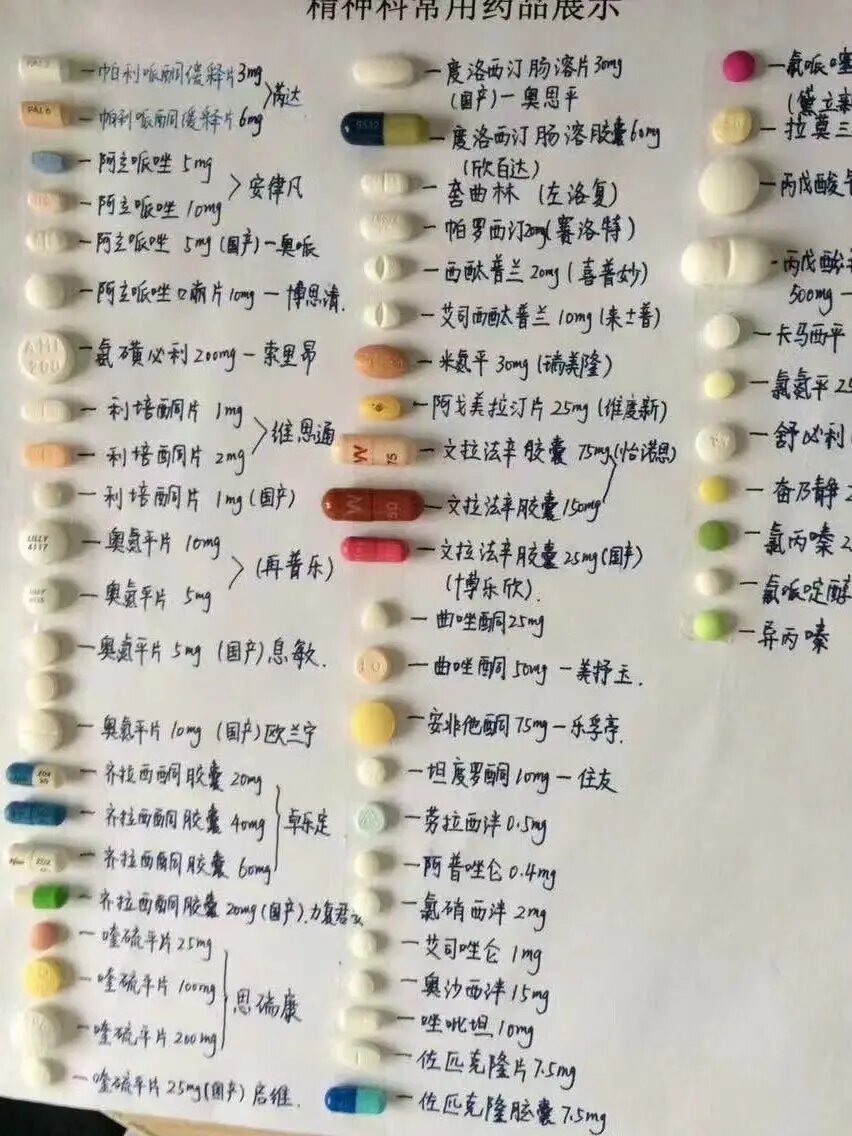 精神科常用药品展示
PAL3
帕利哌酮缓释片3mg
PAL6
帕利哌酮缓释片6mg
芮达
阿立哌唑 5mg
阿立哌唑 10mg
安律凡
阿立哌唑 5mg(国产)—奥哌
阿立哌唑口崩片10mg—博思清.
AMI
200
氨磺必利200mg—索里昂
利培酮片 1mg
利培酮片 2mg
维思通
利培酮片 1mg(国产)
LILLY
4117
奥氮平片 10mg
LILLY
奥氮平片 5mg
(再普乐)
奥氮平片5mg (国产)悉敏.
奥氮平片10mg (国产)欧兰宁
齐拉西酮胶囊20mg
齐拉西酮胶囊 40mg
齐拉西酮胶囊 60mg
卓乐定
齐拉西酮胶囊20mg(国产).力复君
喹硫平片25mg
喹硫平片 100mg
喹硫平片 200mg
思瑞康
喹硫平片25mg(国产)启维.
度洛西汀肠溶片30mg
(国产)—奥思平
度洛西汀肠溶胶囊60mg
(欣百达)
舍曲林 (左洛复)
帕罗西汀20mg(赛洛特)
西酞普兰20mg(喜普妙)
艾司西酞普兰10mg(来士普)
米氮平30mg(瑞美隆)
阿戈美拉汀片25mg(维度新)
W
75
文拉法辛胶囊 75mg(怡诺思)
W
文拉法辛胶囊150mg
文拉法辛胶囊25mg(国产)
(博乐欣).
曲唑酮25mg
10
曲唑酮50mg—美抒玉.
安非他酮75mg—乐孚亭.
坦度罗酮10mg—住友
劳拉西泮0.5mg
阿普唑仑0.4mg
氯硝西泮 2mg
艾司唑仑 1mg
奥沙西泮15mg
唑吡坦10mg
佐匹克隆片7.5mg
佐匹克隆胶囊7.5mg
氯哌噻
(黛立新
拉莫三
丙戊酸
丙戊酸
500mg—
卡马西平
氯氮平25
舒必利
奋乃静2
氯丙嗪2
氟哌啶醇
异丙嗪